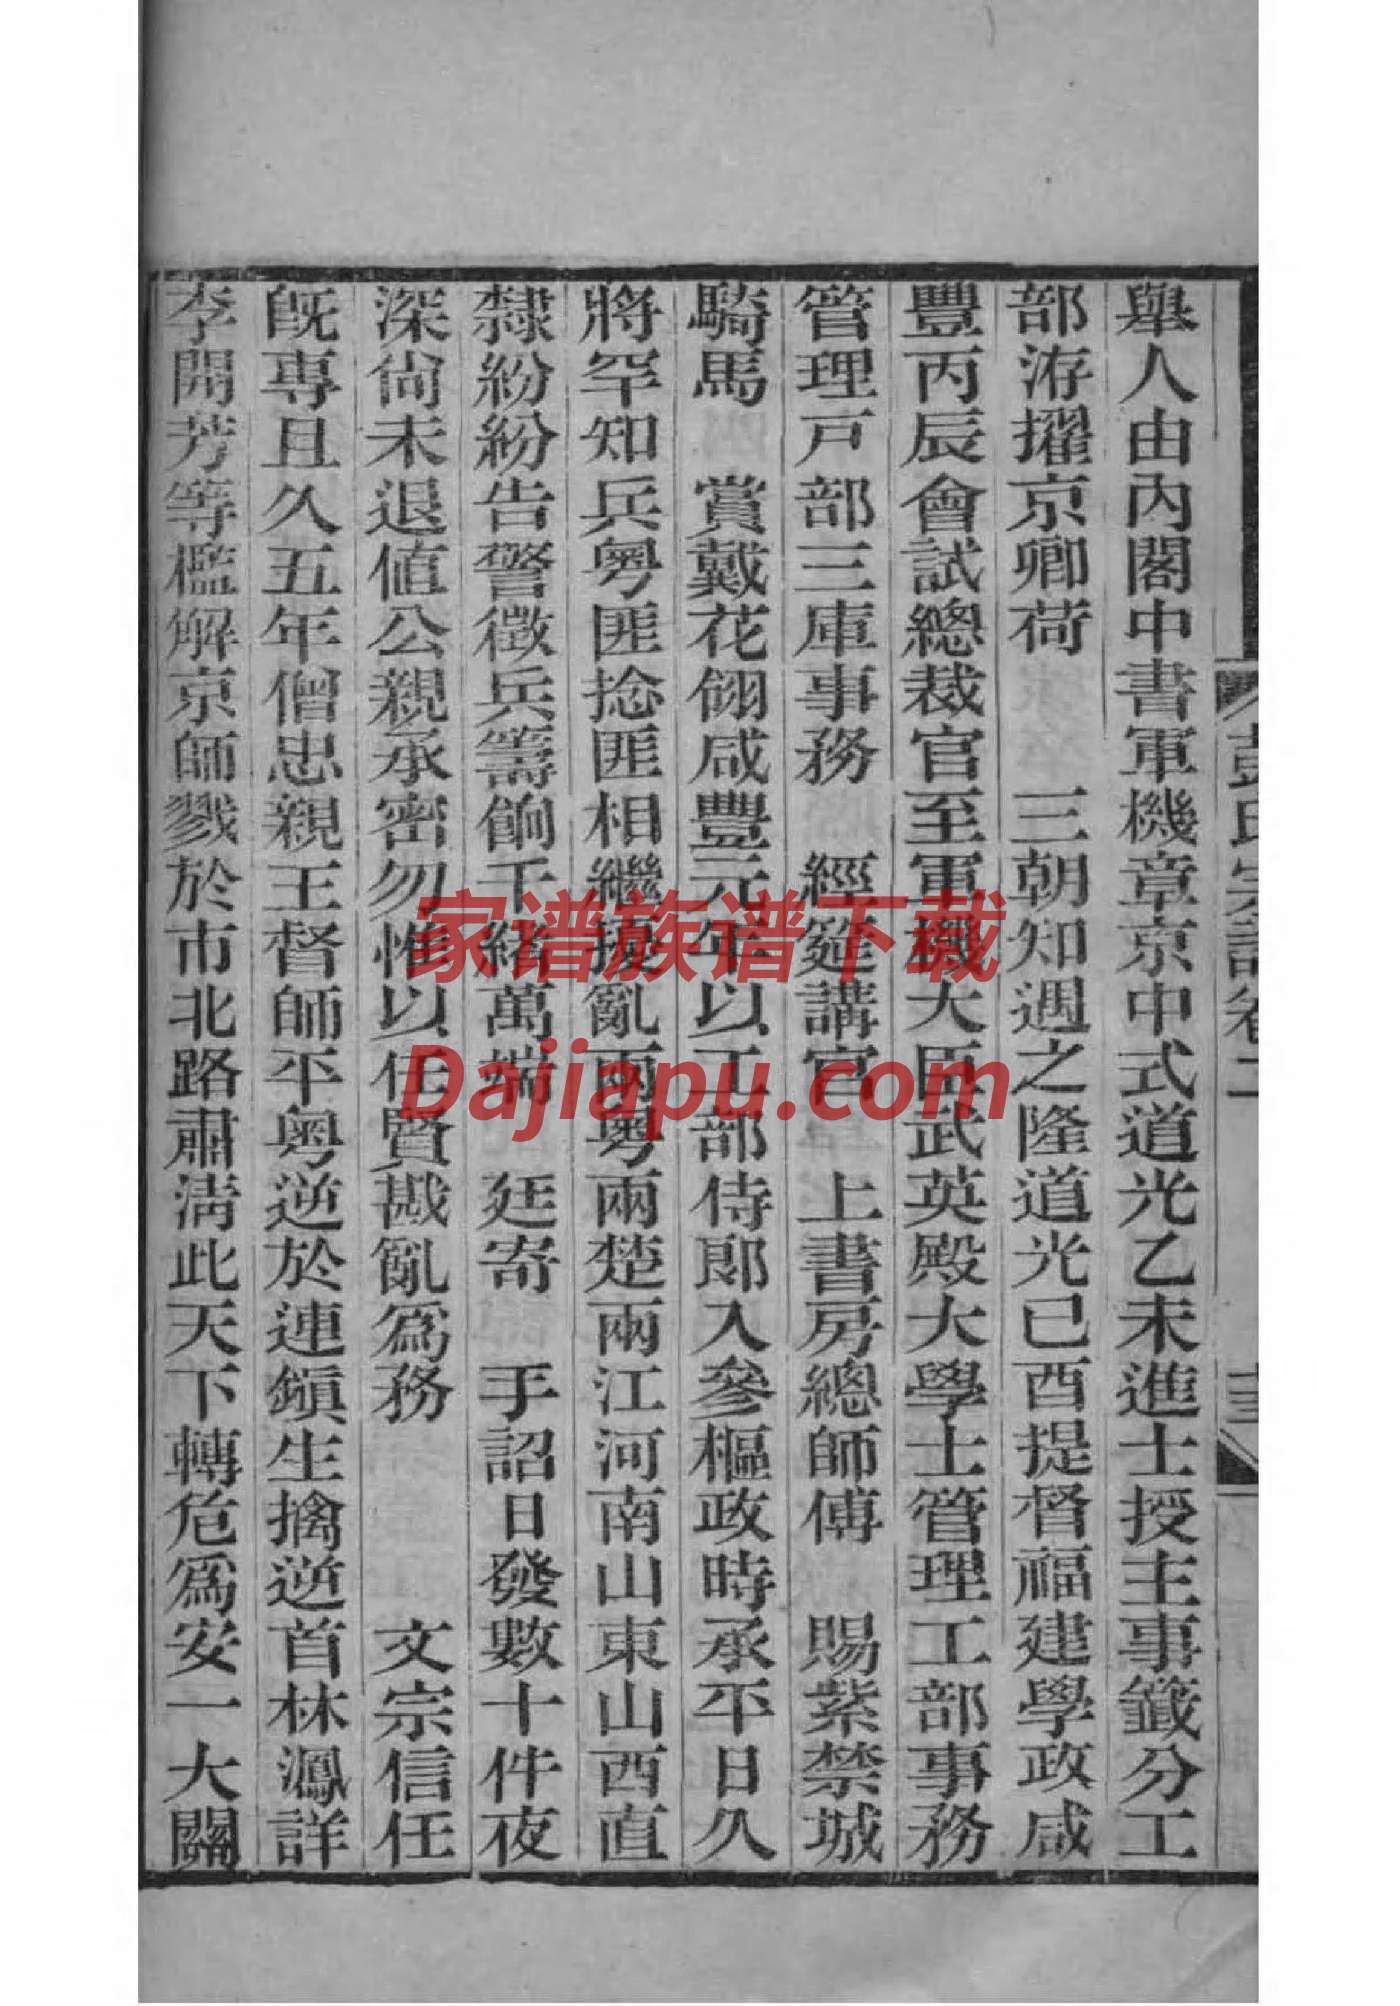 舉人由內閣中書軍機章京中式道光乙未進士授主事籤分工
部洊擢京卿荷 三朝知遇之隆道光已酉提督福建學政咸
豐丙辰會試總裁官至軍機大臣武英殿大學士管理工部事務
管理戸部三庫事務 經筵講官 上書房總師傅 賜紫禁城
騎馬 賞戴花翎咸豐元年以工部侍郞入參樞政時承平日久
將罕知兵粵匪捻匪相繼擾亂兩粵兩楚兩江河南山東山西直
隸紛紛告警徵兵籌餉千緒萬端 廷寄 手詔日發數十件夜
深尙未退値公親承密勿惟以任賢戡亂爲務 文宗信任
旣專且久五年僧忠親王督師平粵逆於連鎭生擒逆首林鳳詳
李開芳等檻解京師戮於市北路肅淸此天下轉危爲安一大關
彭氏宗譜卷二
家谱族谱下载
Dajiapu.com